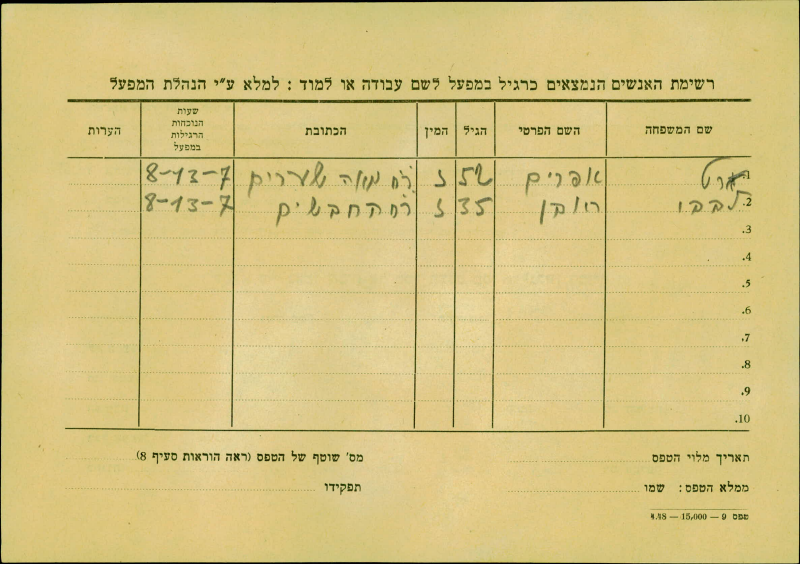 רשימת האנשים הנמצאים כרגיל במפעל לשם עבודה או למוד : למלא ע"י הנהלת המפעל
שם המשפחה השם הפרטי הגיל המין הכתובת שעות הנוכחות הרגילות במפעל הערות
1. אפרים 52 ז רח מאה שערים 8-13-7
2. ראובן 35 ז רח החבשים 8-13-7
3.
4.
5.
6.
7.
8.
9.
10.
תאריך מלוי הטפס מס' שוטף של הטפס (ראה הוראות סעיף 8)
ממלא הטפס: שמו תפקידו
טפס 9 — 15,000 — 4.48